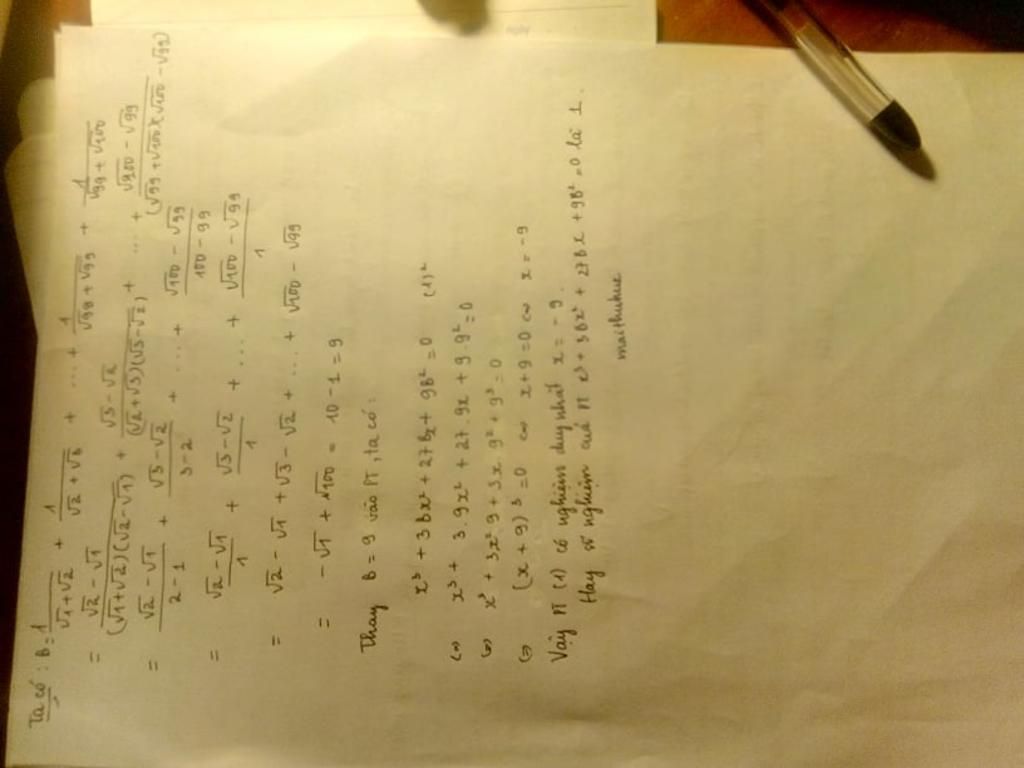 Ta có: B = 1/(√1+√2) + 1/(√2+√3) + ... + 1/(√98+√99) + 1/(√99+√100)
= (√2-√1)/((√1+√2)(√2-√1)) + (√3-√2)/((√2+√3)(√3-√2)) + ... + (√100-√99)/((√99+√100)(√100-√99))
= (√2-√1)/(2-1) + (√3-√2)/(3-2) + ... + (√100-√99)/(100-99)
= (√2-√1)/1 + (√3-√2)/1 + ... + (√100-√99)/1
= √2 - √1 + √3 - √2 + ... + √100 - √99
= -√1 + √100 = 10 - 1 = 9
Thay B = 9 vào PT, ta có:
x³ + 3Bx² + 27Bx + 9B² = 0 (1)²
⇔ x³ + 3.9x² + 27.9x + 9.9² = 0
⇔ x³ + 3x².9 + 3x.9² + 9³ = 0
⇔ (x+9)³ = 0 ⇔ x+9 = 0 ⇔ x = -9
Vậy PT (1) có nghiệm duy nhất x = -9.
Hay số nghiệm của PT x³ + 3Bx² + 27Bx + 9B² = 0 là 1.
maithuhue